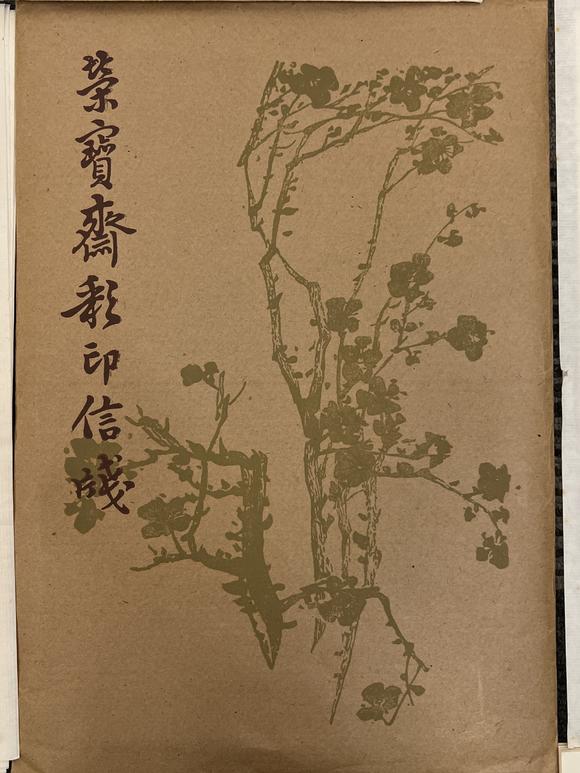 榮寶齋彩印信牋